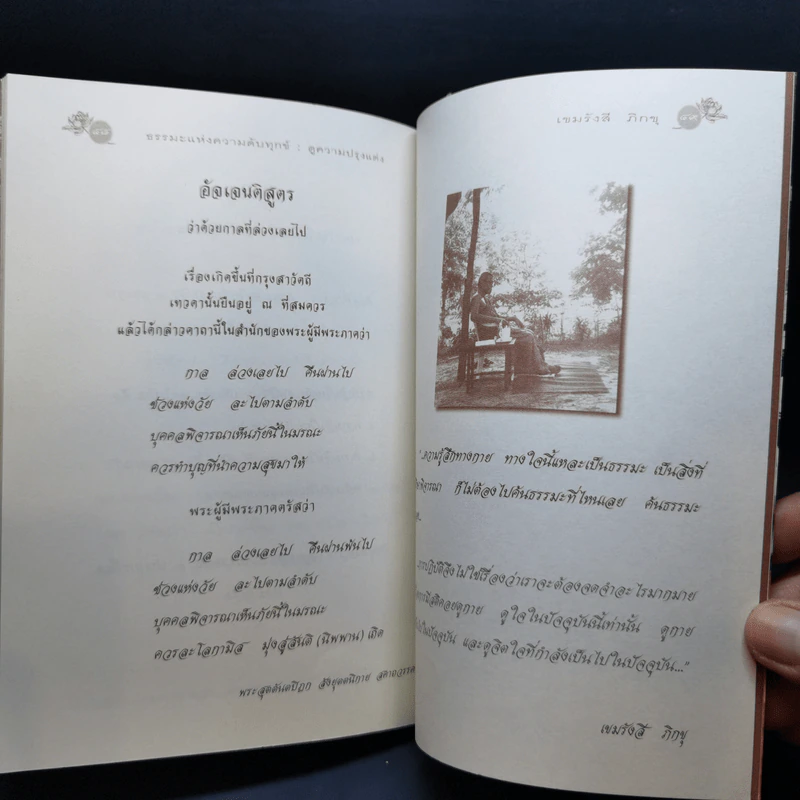 ๘๘
ธรรมะแห่งความดับทุกข์ : ดูความปรุงแต่ง
อัจเจนติสูตร
ว่าด้วยกาลที่ล่วงเลยไป
เรื่องเกิดขึ้นที่กรุงสาวัตถี
เทวดานั้นยืนอยู่ ณ ที่สมควร
แล้วได้กล่าวคาถานี้ในสำนักของพระผู้มีพระภาคว่า
กาล ล่วงเลยไป คืนผ่านไป
ช่วงแห่งวัย ละไปตามลำดับ
บุคคลพิจารณาเห็นภัยนี้ในมรณะ
ควรทำบุญที่นำความสุขมาให้
พระผู้มีพระภาคตรัสว่า
กาล ล่วงเลยไป คืนผ่านพ้นไป
ช่วงแห่งวัย ละไปตามลำดับ
บุคคลพิจารณาเห็นภัยนี้ในมรณะ
ควรละโลกามิส มุ่งสู่สันติ (นิพพาน) เถิด
พระสุตตันตปิฎก สังยุตตนิกาย สคาถวรรค
เขมรังสี ภิกขุ
๘๙
"..ความรู้สึกทางกาย ทางใจนี้แหละเป็นธรรมะ เป็นสิ่งที่
พิจารณา ก็ไม่ต้องไปค้นธรรมะที่ไหนเลย ค้นธรรมะ
ปฏิบัติจึงไม่ใช่เรื่องว่าเราจะต้องจดจำอะไรมากมาย
มีสติคอยดูกาย ดูใจในปัจจุบันนี้เท่านั้น ดูกาย
ในปัจจุบัน และดูจิตใจที่กำลังเป็นไปในปัจจุบัน..."
เขมรังสี ภิกขุ